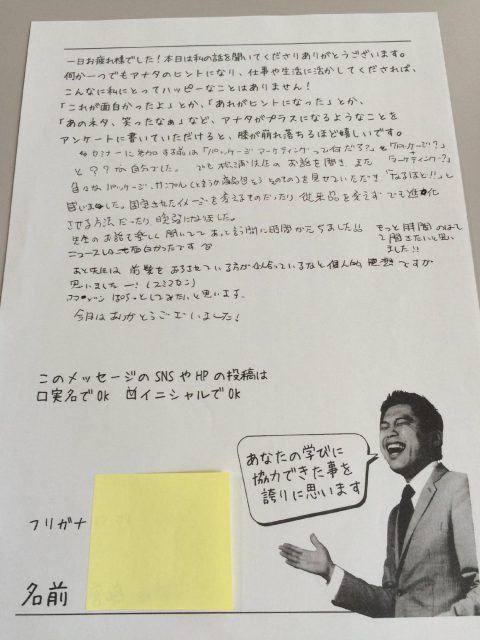 一日お疲れ様でした！本日は私の話を聞いてくださりありがとうございます。
何か一つでもアナタのヒントになり、仕事や生活に活かしてくだされば、
こんなに私にとってハッピーなことはありません！
「これが面白かったよ」とか、「あれがヒントになった」とか、
「あのネタ、笑ったなぁ」など、アナタがプラスになるようなことを
アンケートに書いていただけると、膝が崩れ落ちるほど嬉しいです。
セミナーに参加する前は「パッケージマーケティングって何だろ？」
と？？が自分でした。でも松浦先生のお話を聞き、また
を見せていただき「なるほど！！」と
思いました。固定されたイメージを変えるのだったり、従来品を変えずでも進化
させる方法だったり
先生のお話も楽しく聞いてて あっと言う間に時間がたちました！！
もっと時間のばし
て聞きたいと思い
ました！！
面白かったです
あと先生は 前髪を あるさせている方が似合っているなと個人的感想ですが
思いましたー！（スミマセン）
してみたいと思います。
今日はありがとうございました！
このメッセージのSNSやHPの投稿は
□実名でOK ☑イニシャルでOK
あなたの学びに
協力できた事を
誇りに思います
フリガナ
名前